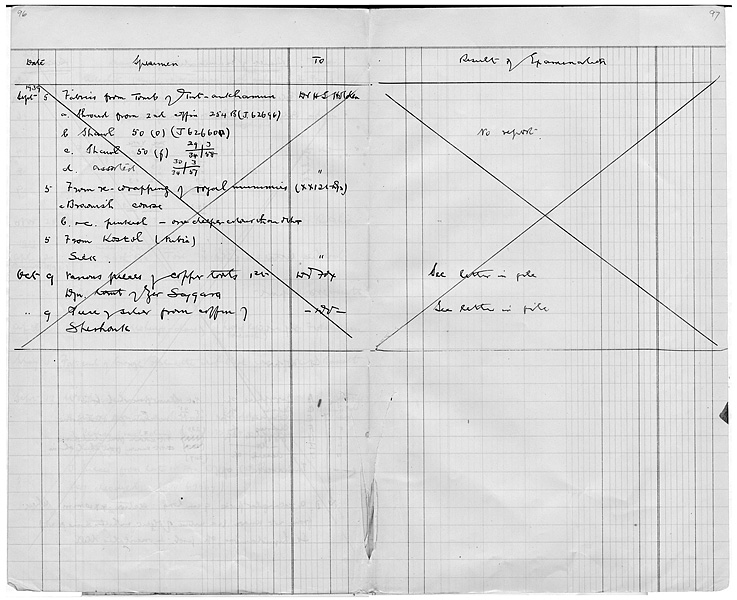 96
97
Date Specimen To Result of Examination
1939
Sept 5 Fabrics from Tomb of Tut-ankhamun Dr H.S.
a. Shroud from 2nd coffin 254 B (J.62696)
b Shawl 50 (o) (J 62660A) No report
c. Shawl 50 (f) 29 3
34 58
d. assorted 30 3
34 57 "
5 From re-wrapping of royal mummies (XXI Dyn)
a Brownish coarse
b. & c. pinkish – one deeper colour than other
5 From Kostol (Nubia)
Silk. "
Oct 9 Various pieces of copper tools 1st Dr Fox See letter in file
Dyn. tomb of Zer Saqqara
" 9 Piece of silver from coffin of – Do – See letter in file
Sheshonk